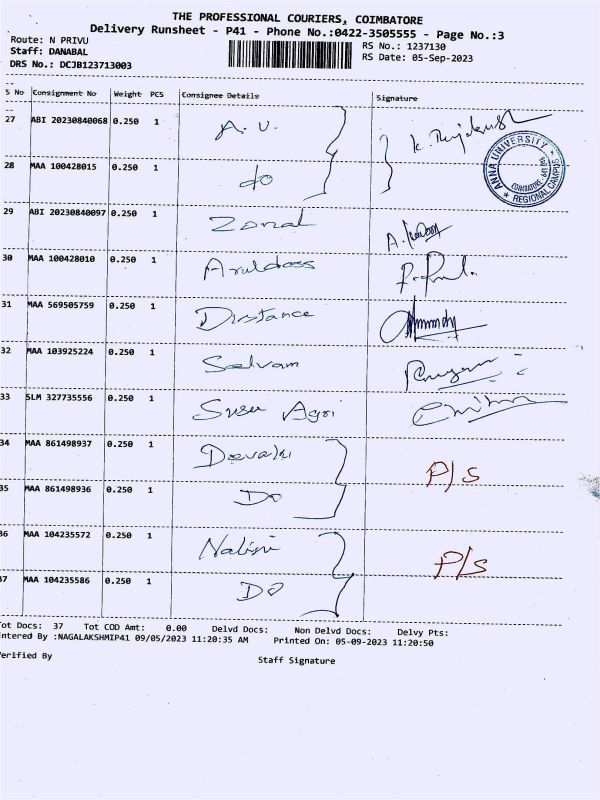 THE PROFESSIONAL COURIERS, COIMBATORE
Delivery Runsheet - P41 - Phone No.:0422-3505555 - Page No.:3
Route: N PRIVU RS No.: 1237130
Staff: DANABAL RS Date: 05-Sep-2023
DRS No.: DCJB123713003
S No Consignment No Weight PCS Consignee Details Signature
27 ABI 20230840068 0.250 1 A. U.
ANNA UNIVERSITY
COIMBATORE
REGIONAL CAMPUS
28 MAA 100428015 0.250 1 do
29 ABI 20230840097 0.250 1 Zonal
30 MAA 100428010 0.250 1 Aruldoss
31 MAA 569505759 0.250 1 Distance
32 MAA 103925224 0.250 1 Selvam
33 SLM 327735556 0.250 1 Agri
34 MAA 861498937 0.250 1 Devaki P/S
35 MAA 861498936 0.250 1 Do
36 MAA 104235572 0.250 1 Nalini P/S
37 MAA 104235586 0.250 1 Do
Tot Docs: 37 Tot COD Amt: 0.00 Delvd Docs: Non Delvd Docs: Delvy Pts:
Entered By :NAGALAKSHMIP41 09/05/2023 11:20:35 AM Printed On: 05-09-2023 11:20:50
Verified By Staff Signature